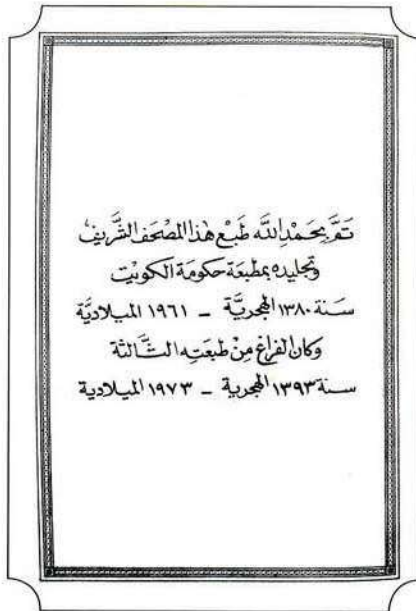 تَمَّ بِحَمْدِ اللَّه طَبْع هٰذا المصْحَف الشَّريف
وتجليده بمطبعَة حكومَة الكويْت
سَنة ١٣٨٠ الهجريَّة – ١٩٦١ الميلاديَّة
وكان الفراغ مِنْ طبعَتِه الثَّالثة
سنة ١٣٩٣ الهجرية – ١٩٧٣ الميلادية